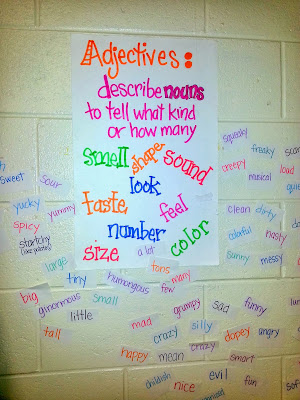 Adjectives:
describe nouns
to tell what kind
or how many
smell shape sound
look
taste feel
number
size a lot color
sweet
sour
yucky
yummy
spicy
starchy
(like potatoes)
large
tiny
humongous
tons
few many
big
ginormous
small
little
tall
squeaky
freaky
creepy
musical
loud
quiet
clean dirty
colorful nasty
sunny messy
mad
grumpy
sad
funny
crazy
silly
dopey
angry
happy
mean
crazy
smart
childish
nice
evil
fun